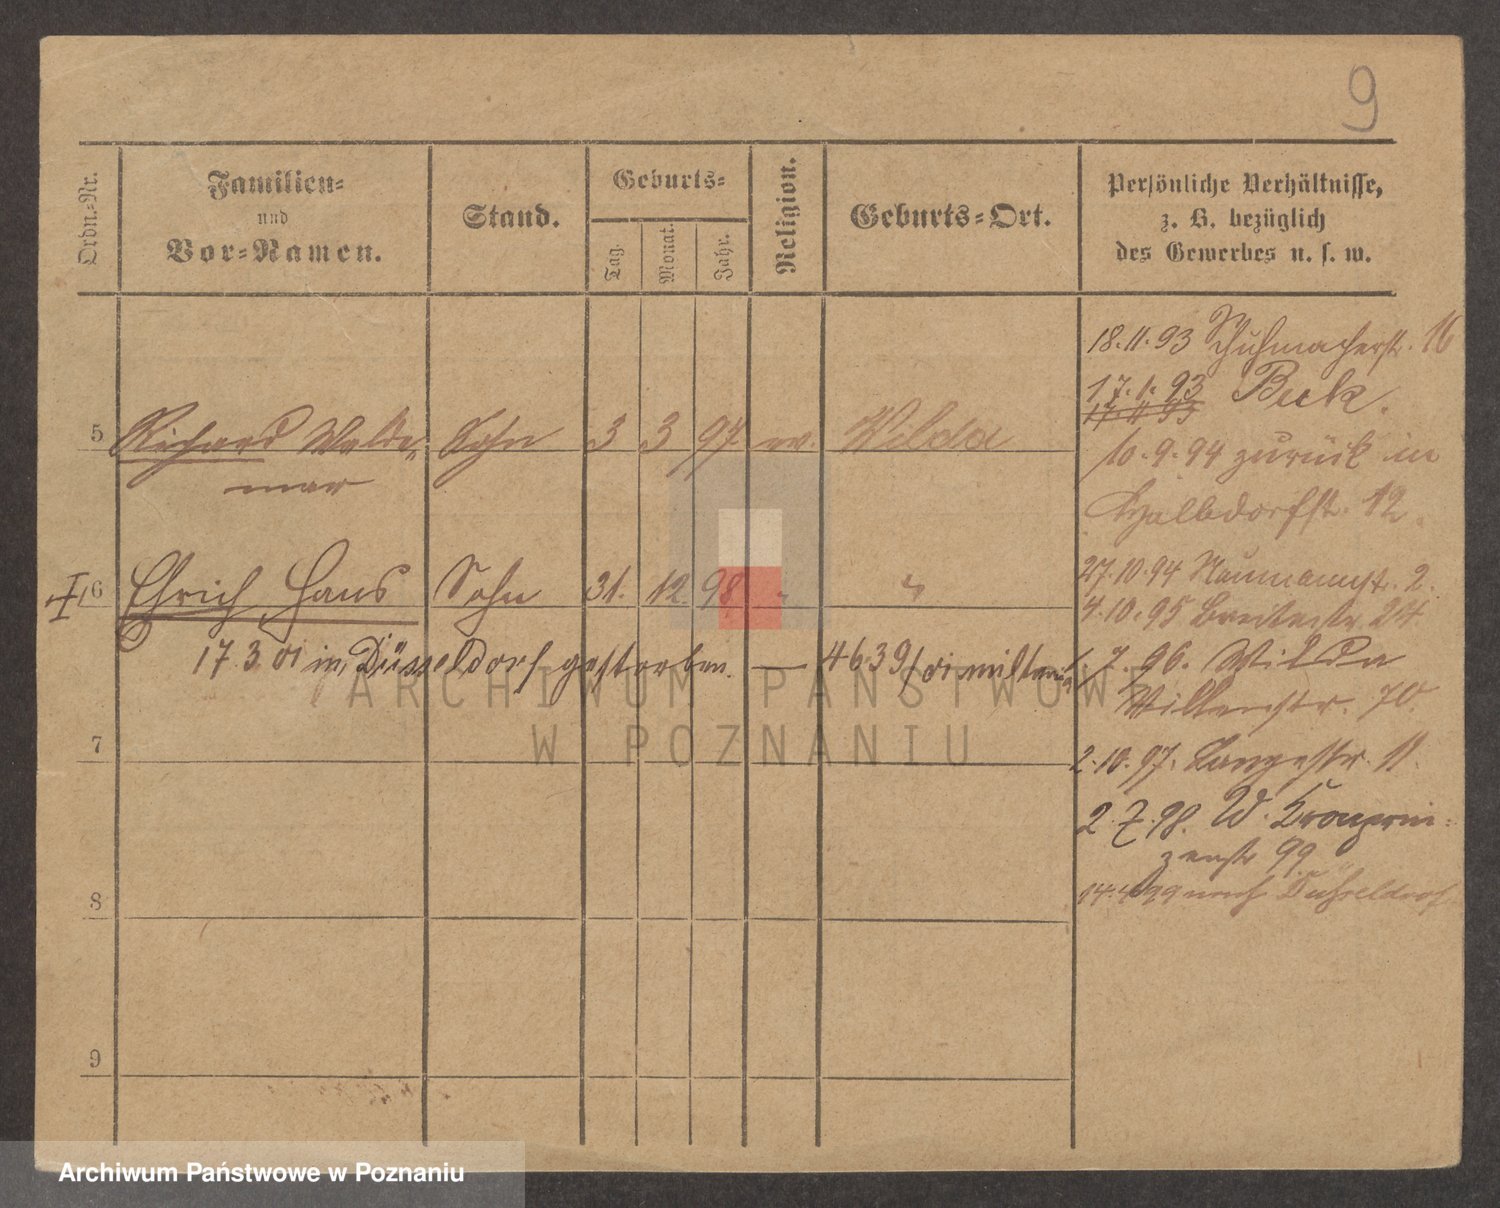 9
Ordn.-Nr.
Familien-
und
Vor-Namen.
Stand.
Geburts-
Tag.
Monat.
Jahr.
Religion.
Geburts-Ort.
Persönliche Verhältnisse,
z. B. bezüglich
des Gewerbes u. s. w.
18.11.93 Schuhmacherstr. 16
17.1.93 Buk.
17 11 93
5 Richard Walde- Sohn 3 3 97 ev. Wilda
mar
10.9.94 zurück in
Halbdorfstr. 12.
I, 6 Ehrich Hans Sohn 31. 12. 98 " "
27.10.94 Naumannst. 2.
4.10.95 Breitestr. 24.
17.3.01 in Düsseldorf gestorben. — 4639/01
1.7.96. Wilda
70.
7
2.10.97. Langestr. 11.
2.7.98. W. Kronprin-
zenstr 99
8
14.4.99 nach Düsseldorf
9
ARCHIWUM PAŃSTWOWE
W POZNANIU
Archiwum Państwowe w Poznaniu